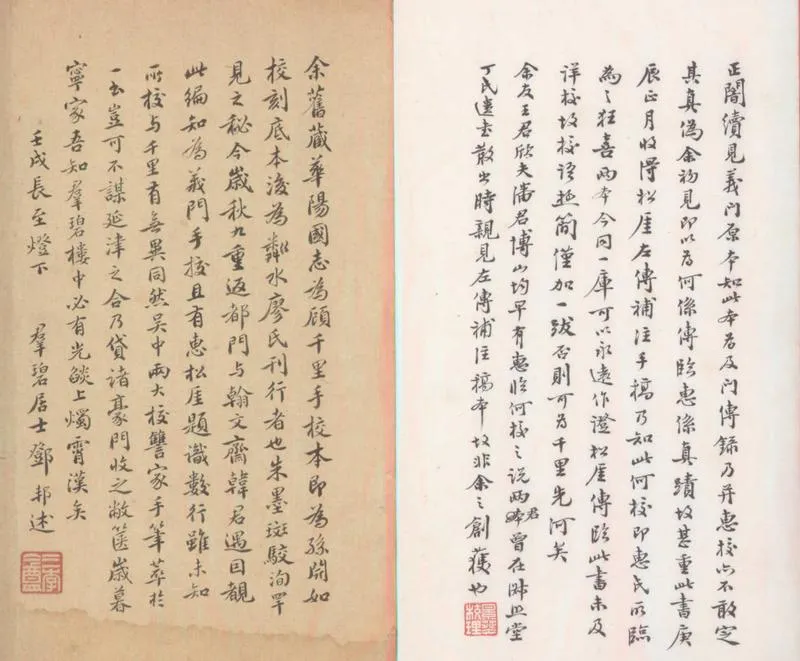 正闇續見義門原本知此本為及門傳錄乃并惠校亦不敢定
其真偽余初見即以為何係傳臨惠係真蹟故甚重此書庚
辰正月收得松厓左傳補注手稿乃知此何校即惠氏所臨
為之狂喜兩本今同一庫可以永遠作證松厓傳臨此書未及
詳校故校語極簡僅加一跋否則可為千里先河矣
余友王君欣夫潘君博山均早有惠臨何校之說兩君曾在淑照堂
丁氏遺書散出時親見左傳補注稿本故非余之創獲也
景葵校理
余舊藏華陽國志為顧千里手校本即為孫淵如
校刻底本後為鄰水廖氏刊行者也朱墨斑駁洵罕
見之秘今歲秋九重返都門與翰文齋韓君遇因覩
此編知為義門手校且有惠松厓題識數行雖未知
所校與千里有無異同然吳中兩大校讐家手筆萃於
一書豈可不謀延津之合乃貸諸豪門收之敝篋歲暮
寧家吾知羣碧樓中必有光燄上燭霄漢矣
壬戌長至燈下 羣碧居士鄧邦述
三李盦